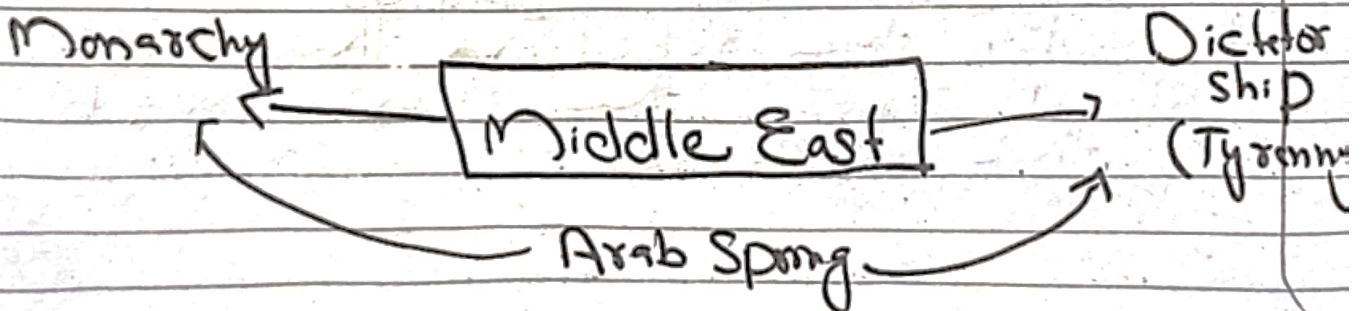 Monarchy
Middle East
Dictetor
Ship
(Tyranny
Arab Spring